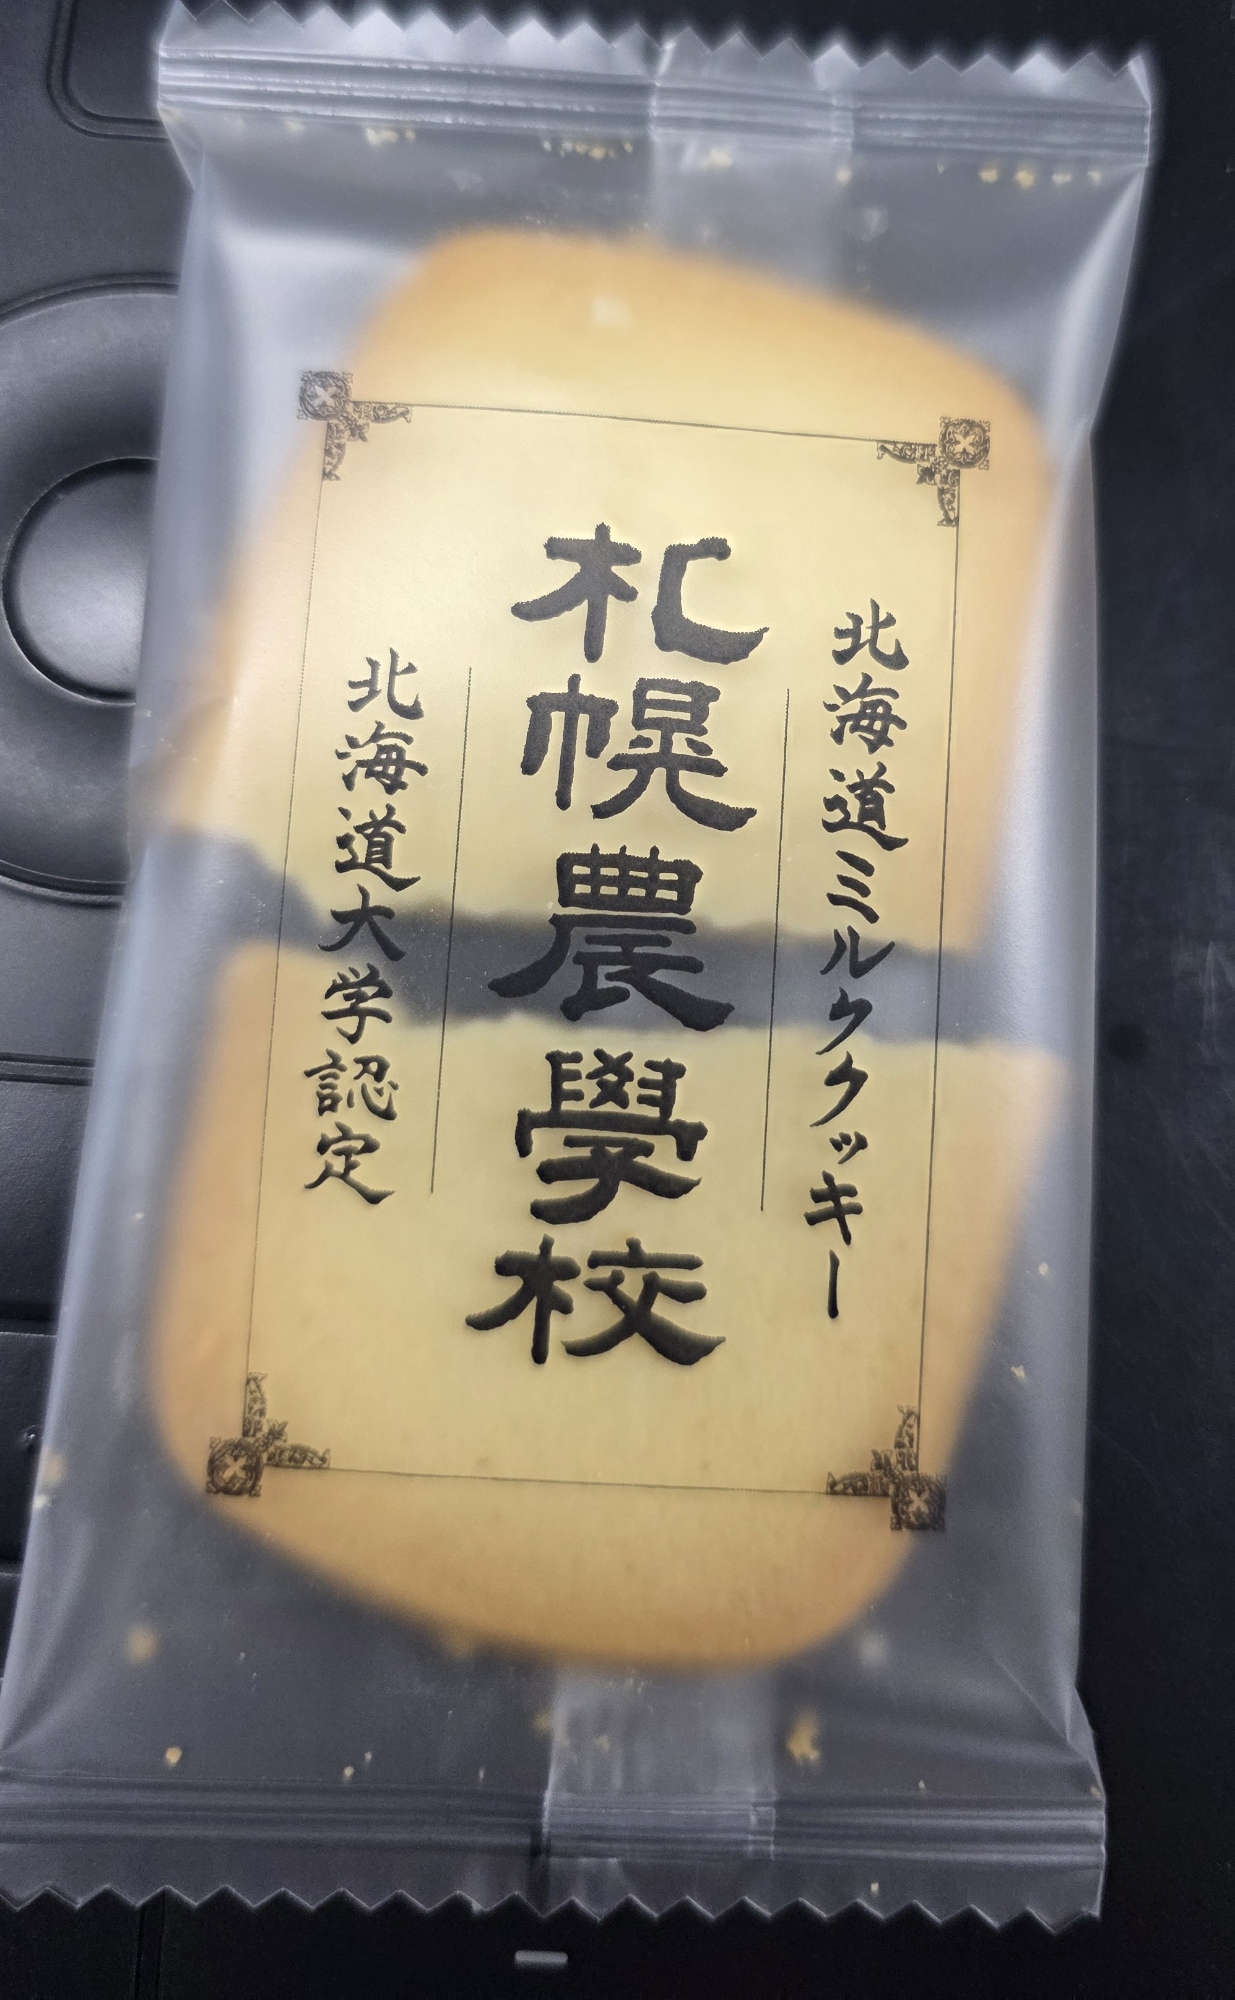 北海道ミルククッキー
札幌農學校
北海道大学認定